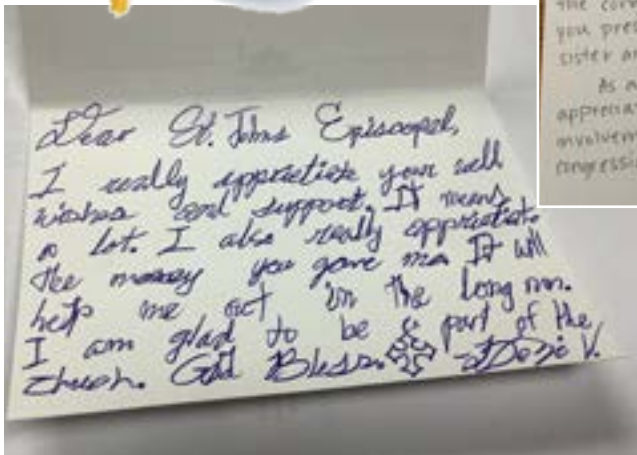 Dear St. Johns Episcopal,
I really appriciate your well
wishes and support. It means
a lot. I also really appriciate
the money you gave me It will
help me out in the long run.
I am glad to be a part of the
church. God Bless. V.
the
you pre
sister a
As a
apprecia
involvem
congressi